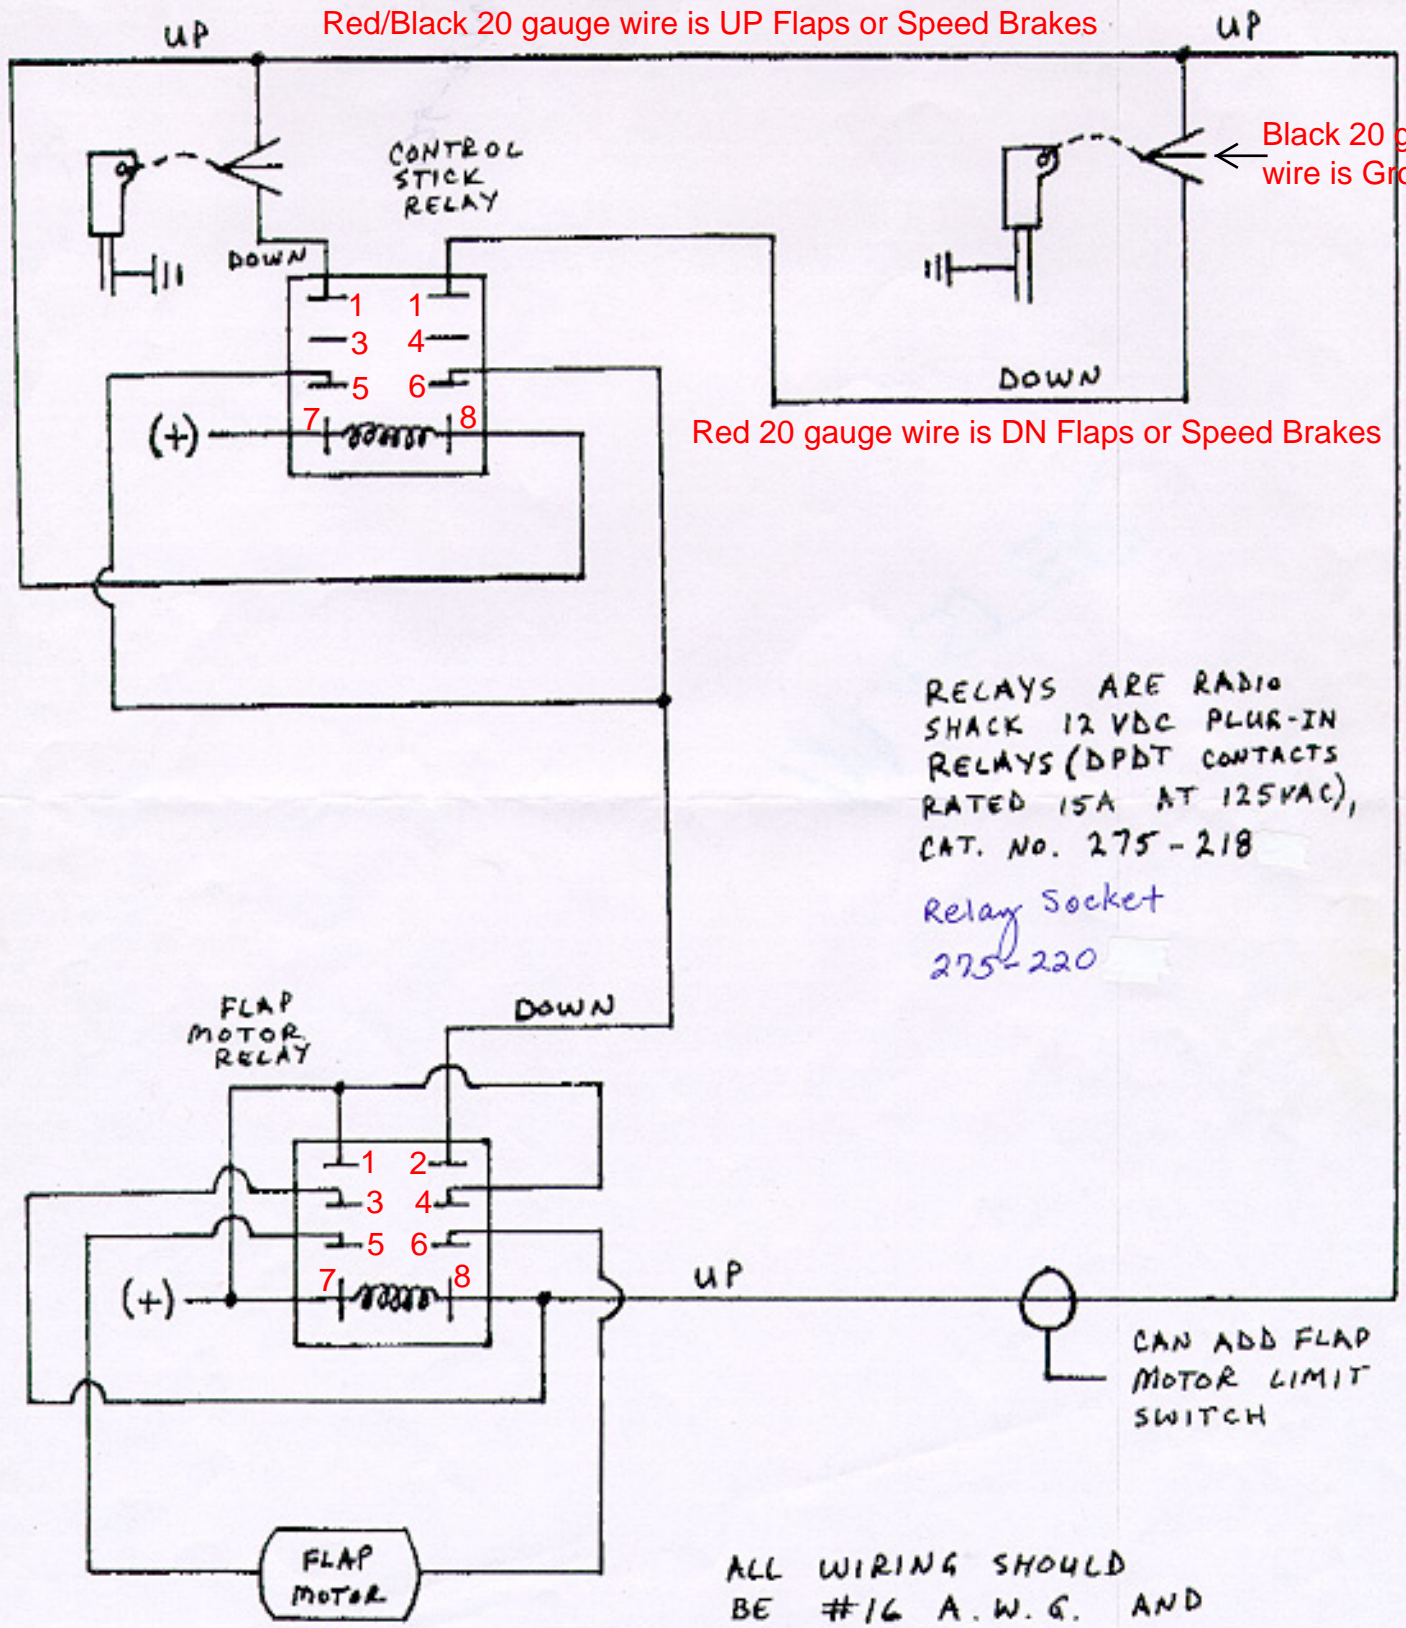 Red/Black 20 gauge wire is UP Flaps or Speed Brakes
UP
UP
CONTROL
STICK
RELAY
Black 20 g
wire is Gro
DOWN
1 1
3 4
5 6
7 8
(+)
DOWN
Red 20 gauge wire is DN Flaps or Speed Brakes
RELAYS ARE RADIO
SHACK 12 VDC PLUG-IN
RELAYS (DPDT CONTACTS
RATED 15A AT 125VAC),
CAT. NO. 275-218
Relay Socket
275-220
FLAP
MOTOR
RELAY
DOWN
1 2
3 4
5 6
7 8
(+)
UP
CAN ADD FLAP
MOTOR LIMIT
SWITCH
FLAP
MOTOR
ALL WIRING SHOULD
BE #16 A.W.G. AND